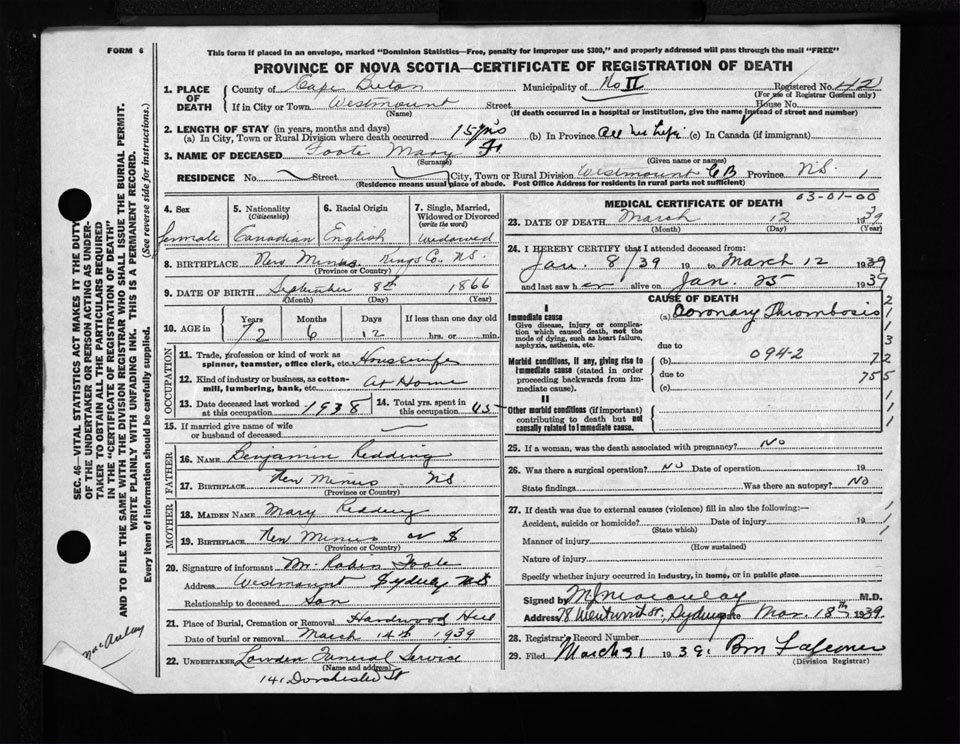 FORM 6
This form if placed in an envelope, marked "Dominion Statistics—Free, penalty for improper use $300," and properly addressed will pass through the mail "FREE"
PROVINCE OF NOVA SCOTIA—CERTIFICATE OF REGISTRATION OF DEATH
SEC. 46—VITAL STATISTICS ACT MAKES IT THE DUTY
OF THE UNDERTAKER OR PERSON ACTING AS UNDER-
TAKER TO OBTAIN ALL THE PARTICULARS REQUIRED
IN THE "CERTIFICATE OF REGISTRATION OF DEATH"
AND TO FILE THE SAME WITH THE DIVISION REGISTRAR WHO SHALL ISSUE THE BURIAL PERMIT.
WRITE PLAINLY WITH UNFADING INK. THIS IS A PERMANENT RECORD.
Every item of information should be carefully supplied. (See reverse side for instructions.)
1. PLACE OF DEATH County of Cape Breton Municipality of No II Registered No.
(For use of Registrar General only)
If in City or Town Westmount Street House No.
(Name) (If death occurred in a hospital or institution, give the name instead of street and number)
2. LENGTH OF STAY (in years, months and days)
(a) In City, Town or Rural Division where death occurred 15 yrs (b) In Province All her life (c) In Canada (if immigrant)
3. NAME OF DECEASED Foote Mary
(Surname) (Given name or names)
RESIDENCE No. Street City, Town or Rural Division Westmount CB Province N.S.
(Residence means usual place of abode. Post Office Address for residents in rural parts not sufficient)
4. Sex 5. Nationality (Citizenship) 6. Racial Origin 7. Single, Married, Widowed or Divorced (write the word)
female Canadian English Widowed
8. BIRTHPLACE New Minas Kings Co. N.S.
(Province or Country)
9. DATE OF BIRTH September 8th 1866
(Month) (Day) (Year)
10. AGE in Years Months Days If less than one day
72 6 12 hrs. or min.
OCCUPATION
11. Trade, profession or kind of work as spinner, teamster, office clerk, etc. Housewife
12. Kind of industry or business, as cotton-mill, lumbering, bank, etc. At Home
13. Date deceased last worked at this occupation 1938 14. Total yrs. spent in this occupation 45
15. If married give name of wife or husband of deceased
FATHER
16. NAME Benjamin Redding
17. BIRTHPLACE New Minas N.S.
(Province or Country)
MOTHER
18. MAIDEN NAME Mary Redding
19. BIRTHPLACE New Minas N S
(Province or Country)
20. Signature of informant Mr. Robin Foote
Address Westmount Sydney NS
Relationship to deceased Son
21. Place of Burial, Cremation or Removal Hardwood Hill
Date of burial or removal March 14th 1939
22. UNDERTAKER Lowden Funeral Service
(Name and address)
141 Dorchester St
MacAulay
MEDICAL CERTIFICATE OF DEATH 03-01-00
23. DATE OF DEATH March 12 1939
(Month) (Day) (Year)
24. I HEREBY CERTIFY that I attended deceased from:
Jan. 8/39 19 to March 12 1939
and last saw her alive on Jan. 25 1939
CAUSE OF DEATH
I
Immediate cause (a) Coronary Thrombosis
Give disease, injury or complication which caused death, not the mode of dying, such as heart failure, asphyxia, asthenia, etc.
due to
Morbid conditions, if any, giving rise to immediate cause (stated in order proceeding backwards from immediate cause). (b) 094-2
due to
(c)
II
Other morbid conditions (if important) contributing to death but not causally related to immediate cause.
25. If a woman, was the death associated with pregnancy? No
26. Was there a surgical operation? No Date of operation 19
State findings Was there an autopsy? No
27. If death was due to external causes (violence) fill in also the following:—
Accident, suicide or homicide? Date of injury 19
(State which)
Manner of injury
(How sustained)
Nature of injury
Specify whether injury occurred in industry, in home, or in public place
Signed by M J Macaulay M.D.
Address 78 Wentworth St, Sydney Date Mar. 18th 1939
28. Registrar's Record Number
29. Filed March 31 1939 Falconer
(Division Registrar)